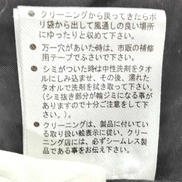 ●クリーニングから戻ってきたらポ
リ袋から出して風通しの良い場所
にゆったりと収めて下さい。
●万一穴があいた時は、市販の補修
用テープでふさいで下さい。
●シミがついた時は中性洗剤をタオ
ルにしみ込ませ、その後、濡れた
タオルで洗剤を拭き取って下さい。
(シミ抜き部分が輪ジミになる事が
ありますので十分ご注意をして下
さい。)
●クリーニングは、製品に付いてい
る取り扱い絵表示に従い、クリー
ニング店には、必ずシームレス製
品である事をお伝え下さい。